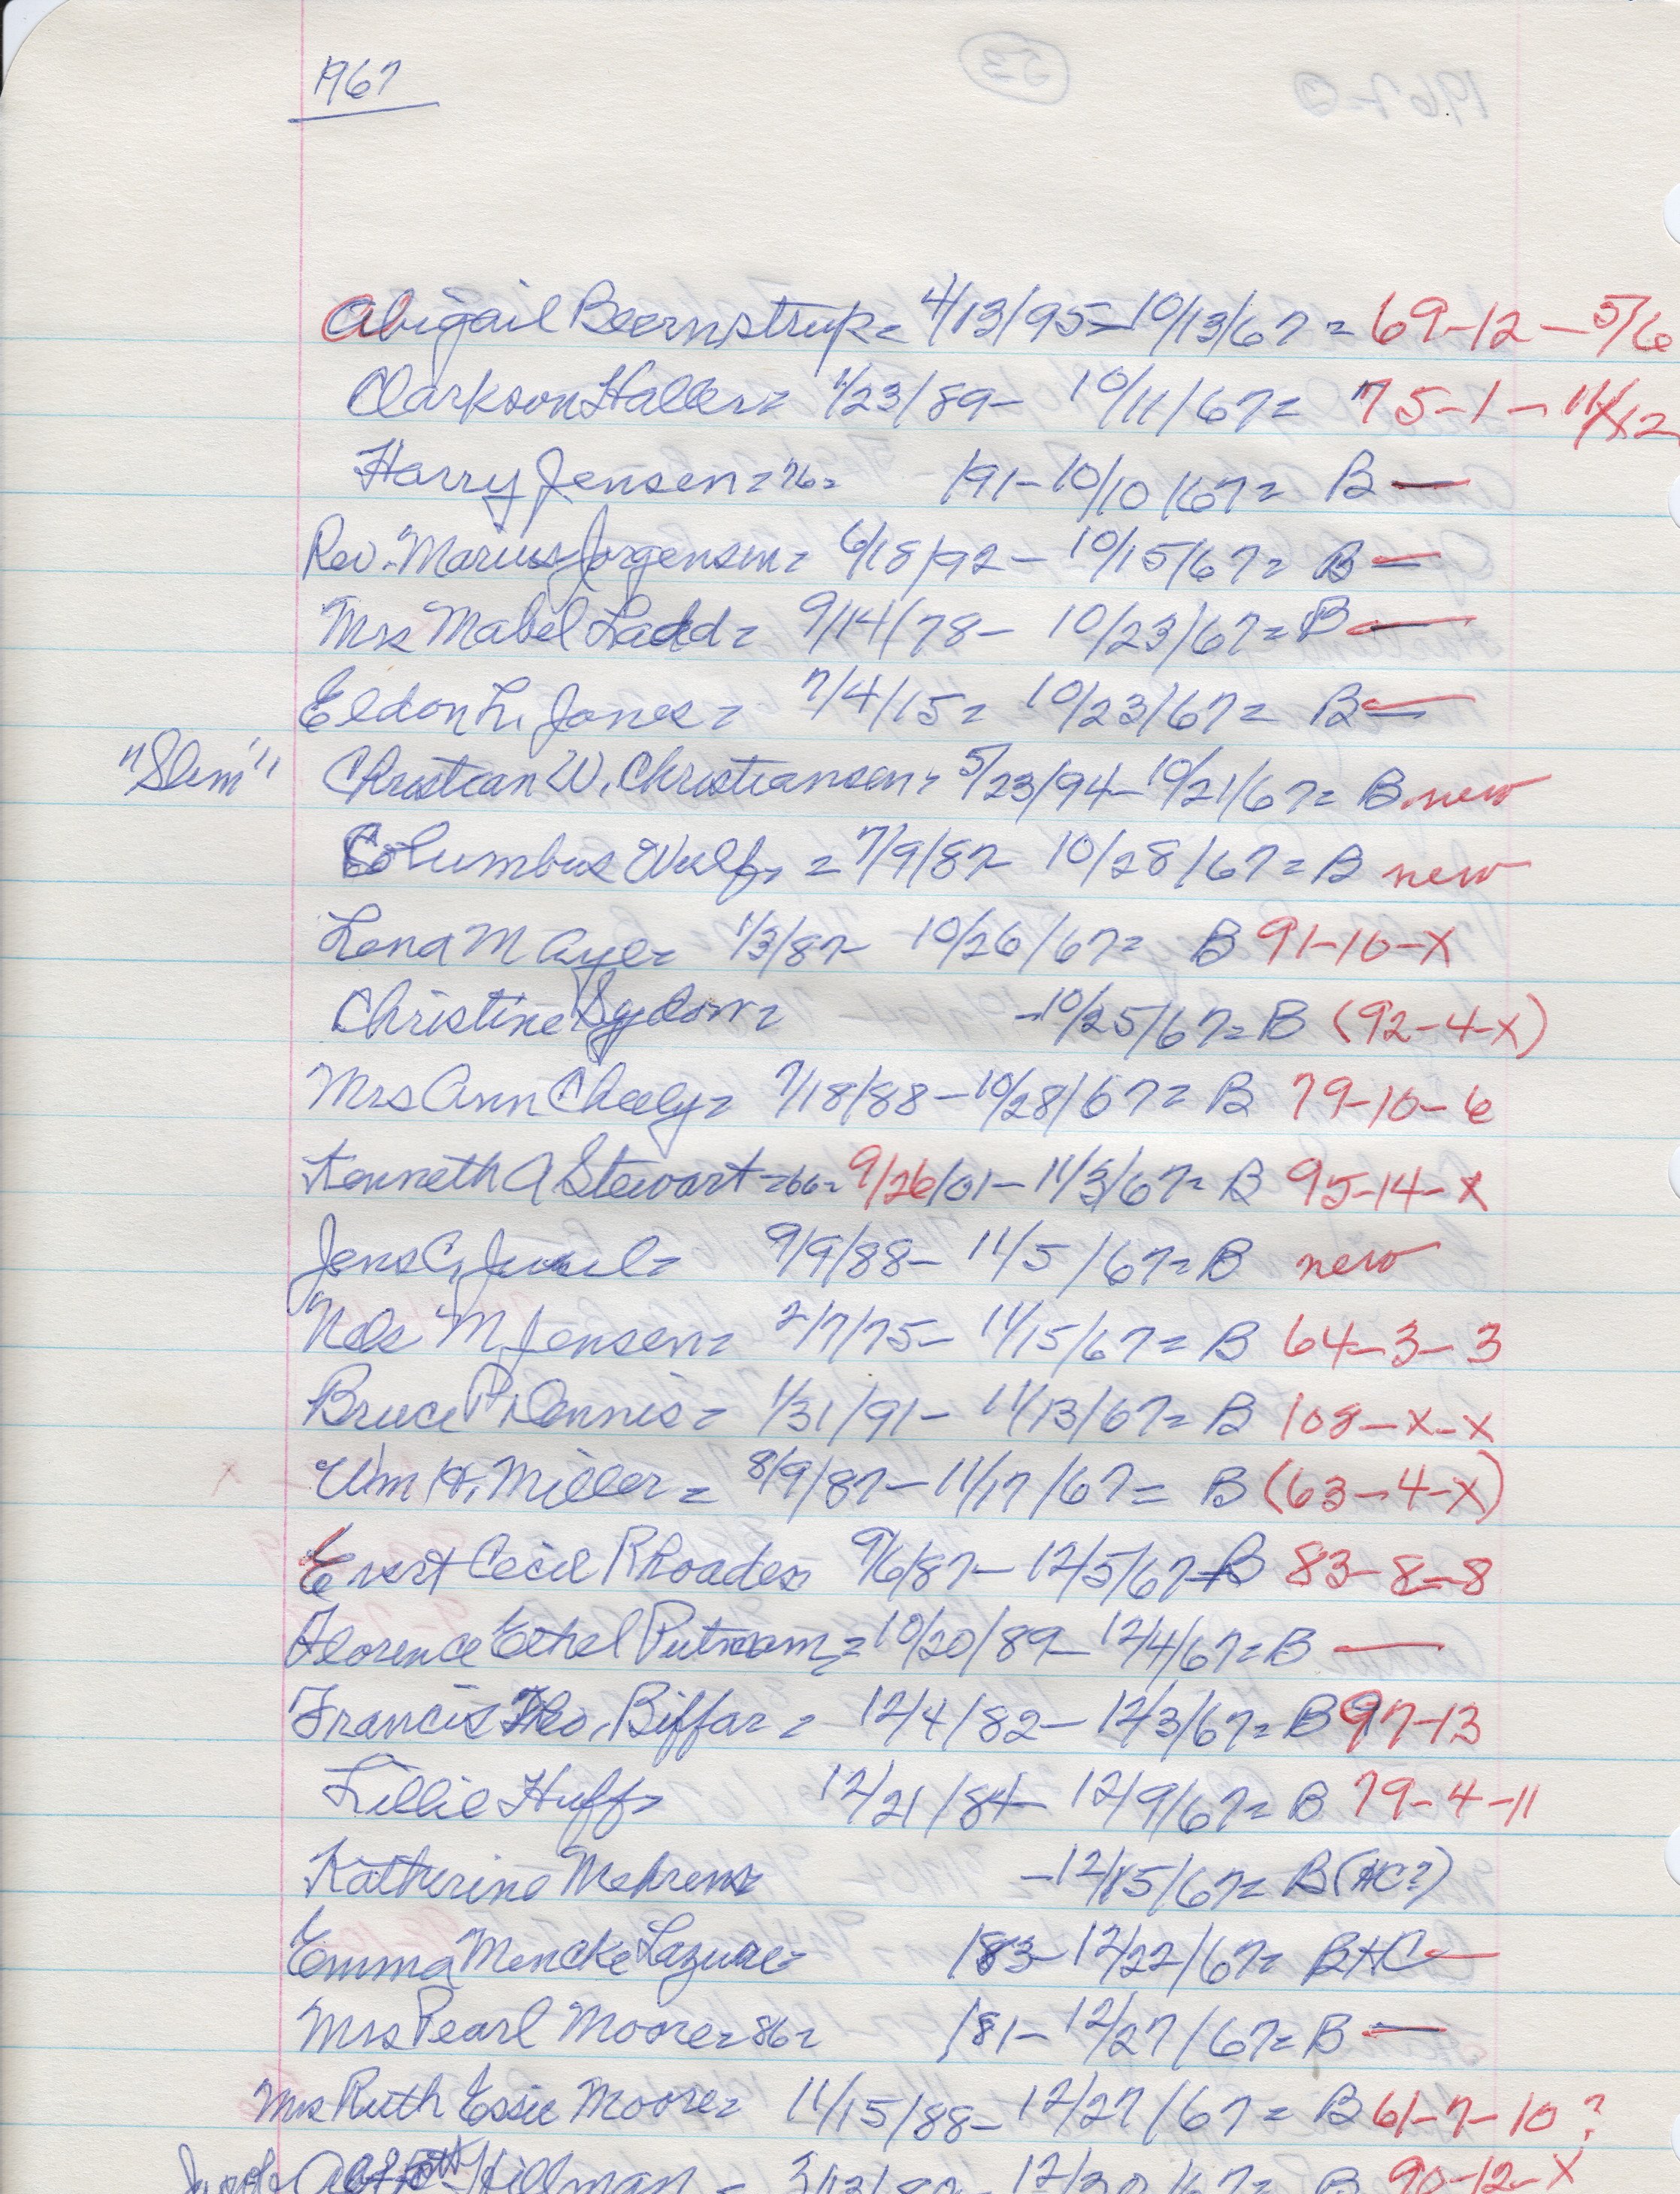 1967
Abigail Beernstrup = 4/13/95 - 10/13/67 = 69-12-5/6
Clarkson Haller = 1/23/89 - 10/11/67 = 75-1-11/12
Harry Jensen = 76 = /91 - 10/10/67 = B —
Rev. Marius Jorgensen = 6/18/92 - 10/15/67 = B —
Mrs Mabel Ladd = 9/14/78 - 10/23/67 = B —
Eldon L. Jones = 7/4/15 = 10/23/67 = B —
"Slim" Christian W. Christiansen = 5/23/94 - 10/21/67 = B new
Columbus Wulf = 7/9/87 - 10/28/67 = B new
Lena M Aye = 1/3/87 - 10/26/67 = B 91-10-X
Christine Sydow = - 10/25/67 = B (92-4-X)
Mrs Ann Cheely = 7/18/88 - 10/28/67 = B 79-10-6
Kenneth A Stewart = 66 = 9/26/01 - 11/3/67 = B 95-14-X
Jens C. Juul = 9/9/88 - 11/5/67 = B new
Nels M Jensen = 2/7/75 - 11/15/67 = B 64-3-3
Bruce P. Dennis = 1/31/91 - 11/13/67 = B 108-X-X
Wm H. Miller = 8/9/87 - 11/17/67 = B (63-4-X)
Evert Cecil Rhoades 9/6/87 - 12/5/67 = B 83-8-8
Florence Ethel Putnam = 10/20/89 - 12/4/67 = B —
Francis Theo. Biffar = 12/4/82 - 12/3/67 = B 97-13
Lillie Huff = 12/21/84 - 12/9/67 = B 79-4-11
Katherine Mehrens = - 12/15/67 = B (HC?)
Emma Mencke Lazure = /83 - 12/22/67 = B HC —
Mrs Pearl Moore = 86 = /81 - 12/27/67 = B —
Mrs Ruth Essie Moore = 11/15/88 - 12/27/67 = B 61-7-10 ?
Hillman = 12/30/67 = B 90-12-X